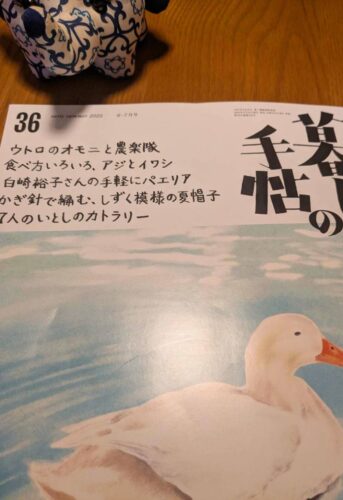 36
early summer 2025
6-7月号
ウトロのオモニと農楽隊
食べ方いろいろ、アジとイワシ
白崎裕子さんの手軽にパエリア
かぎ針で編む、しずく模様の夏帽子
7人のいとしのカトラリー
暮しの
手帖